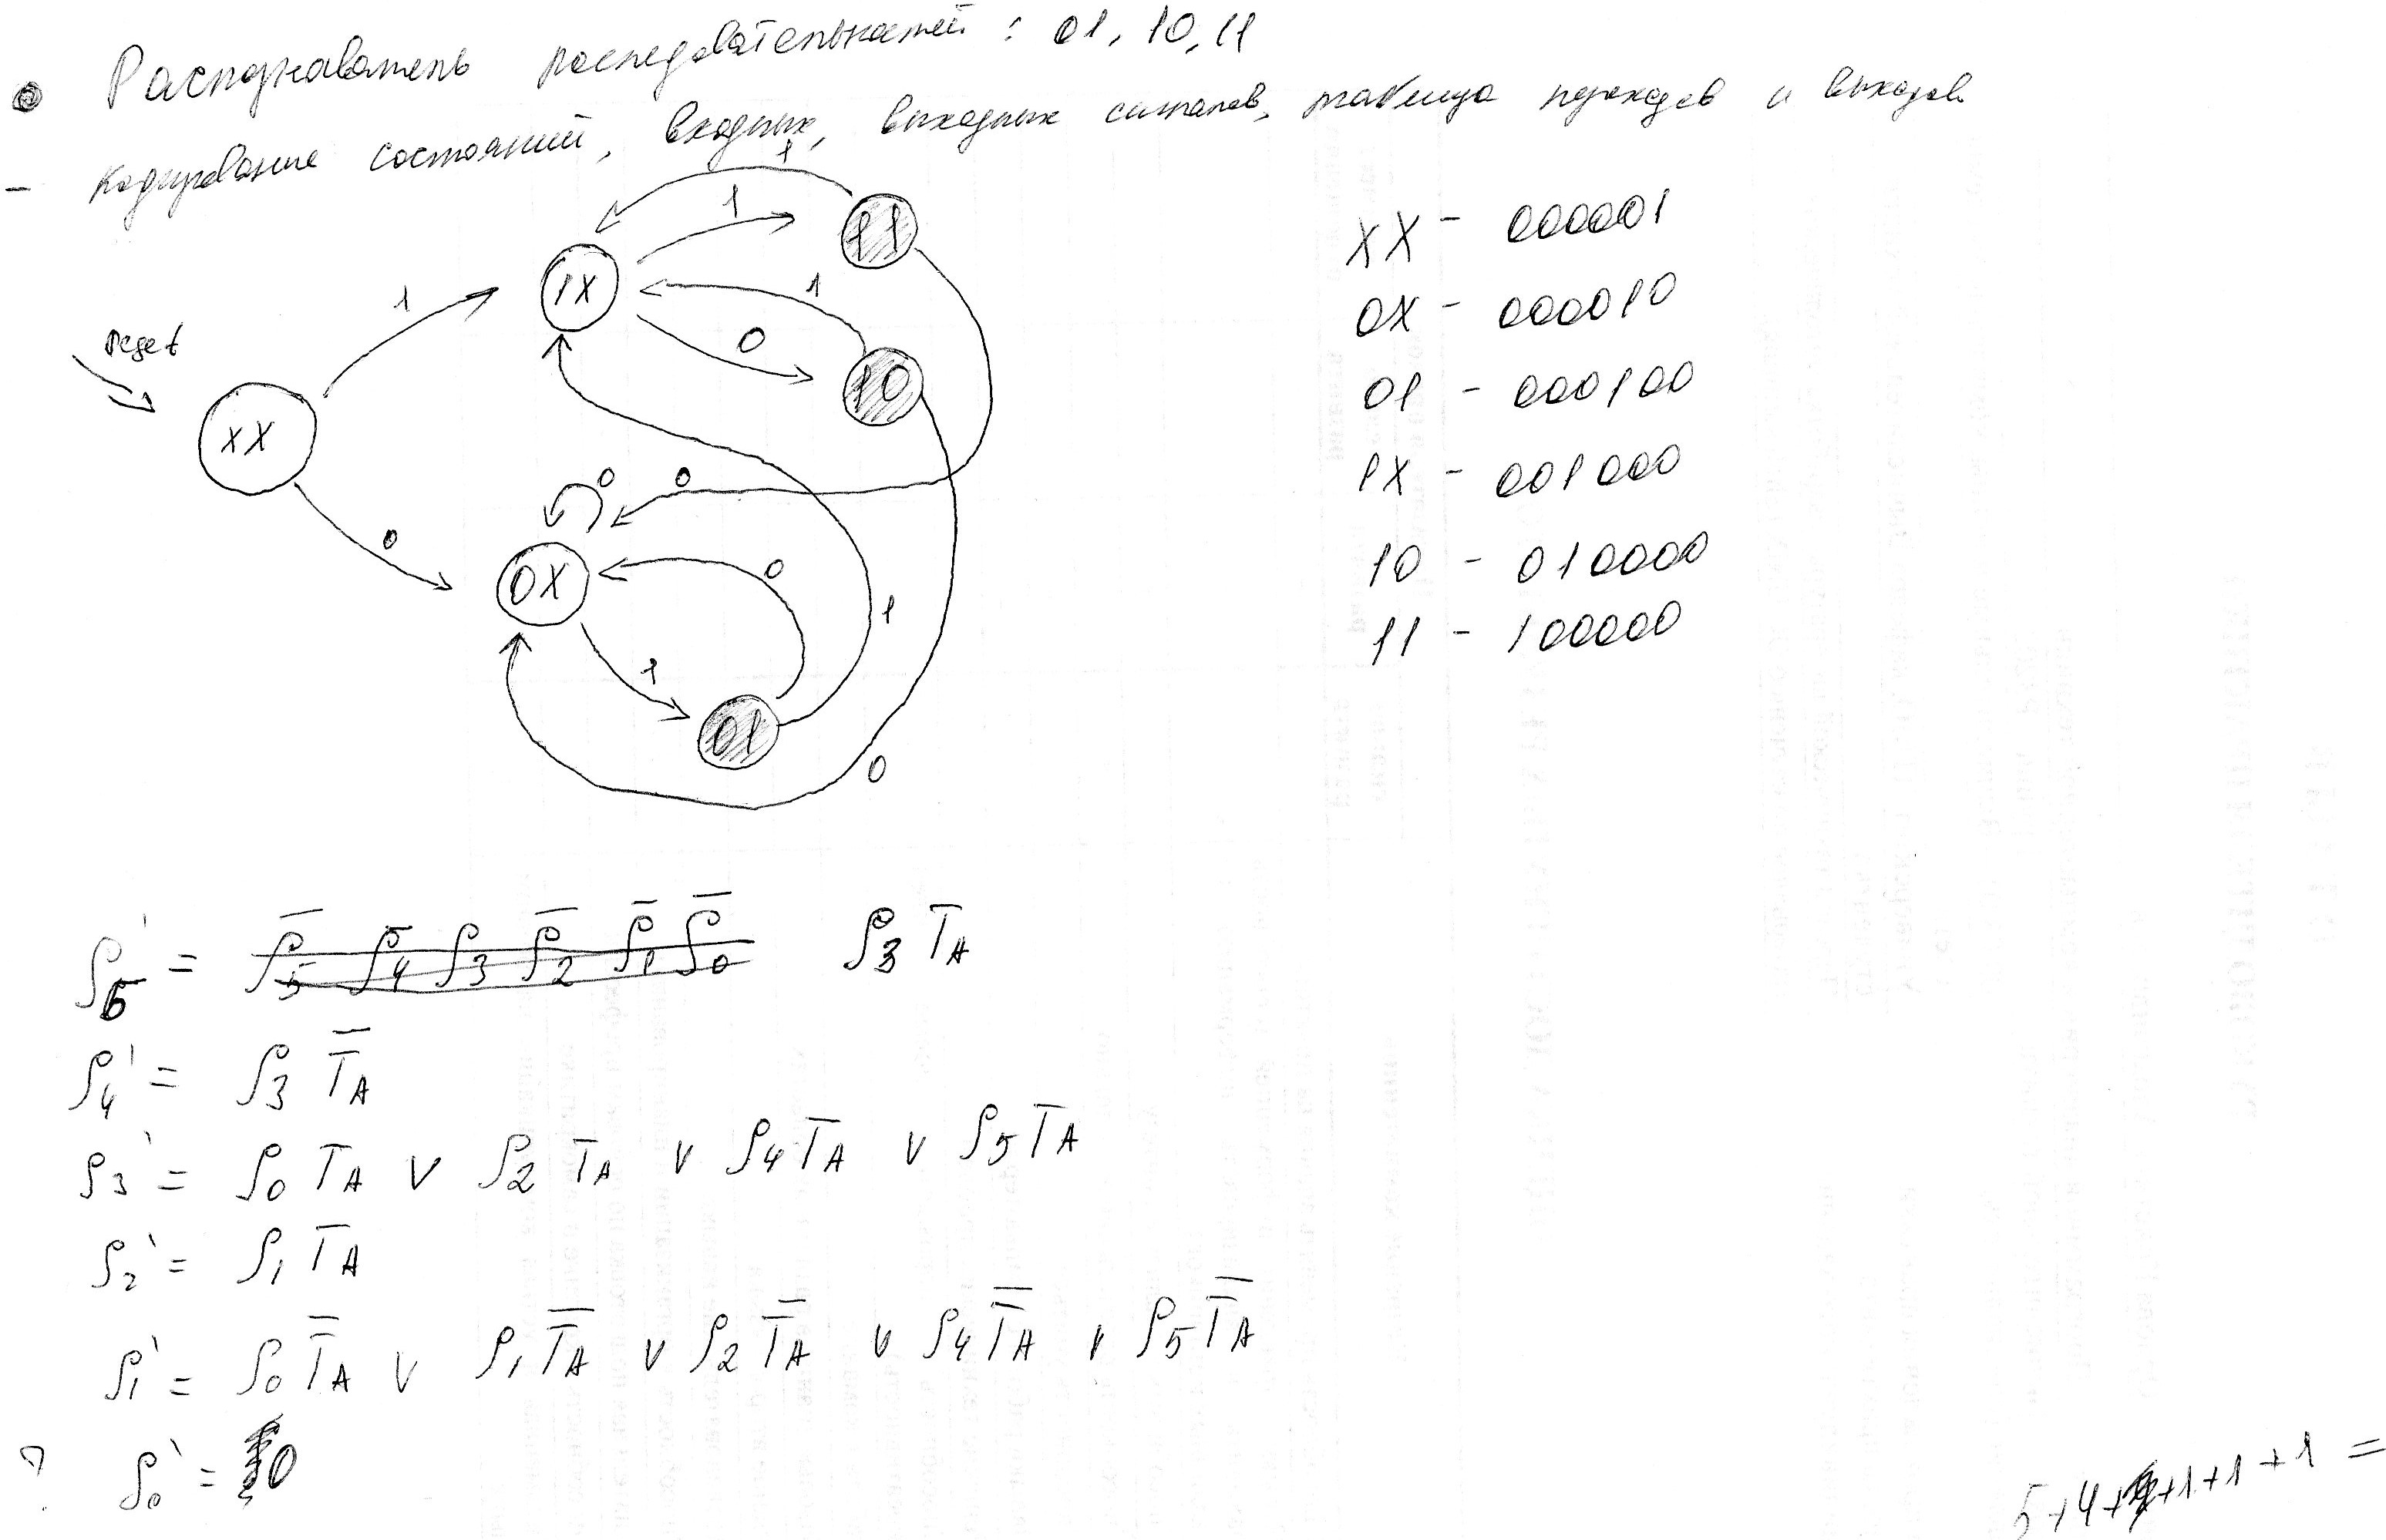 Распознаватель последовательностей: 01, 10, 11
- Кодирование состояний, входных, выходных сигналов, таблица переходов и выходов
reset
XX
1
0
1X
1
0
1
1
11
10
0X
0
0
0
1
1
0
01
XX - 000001
0X - 000010
01 - 000100
1X - 001000
10 - 010000
11 - 100000
ρ5' = ρ3 TA
ρ4' = ρ3 T̅A
ρ3' = ρ0 TA ∨ ρ2 TA ∨ ρ4 TA ∨ ρ5 TA
ρ2' = ρ1 TA
ρ1' = ρ0 T̅A ∨ ρ1 T̅A ∨ ρ2 T̅A ∨ ρ4 T̅A ∨ ρ5 T̅A
? ρ0' = 0
5+4+1+1+1 =